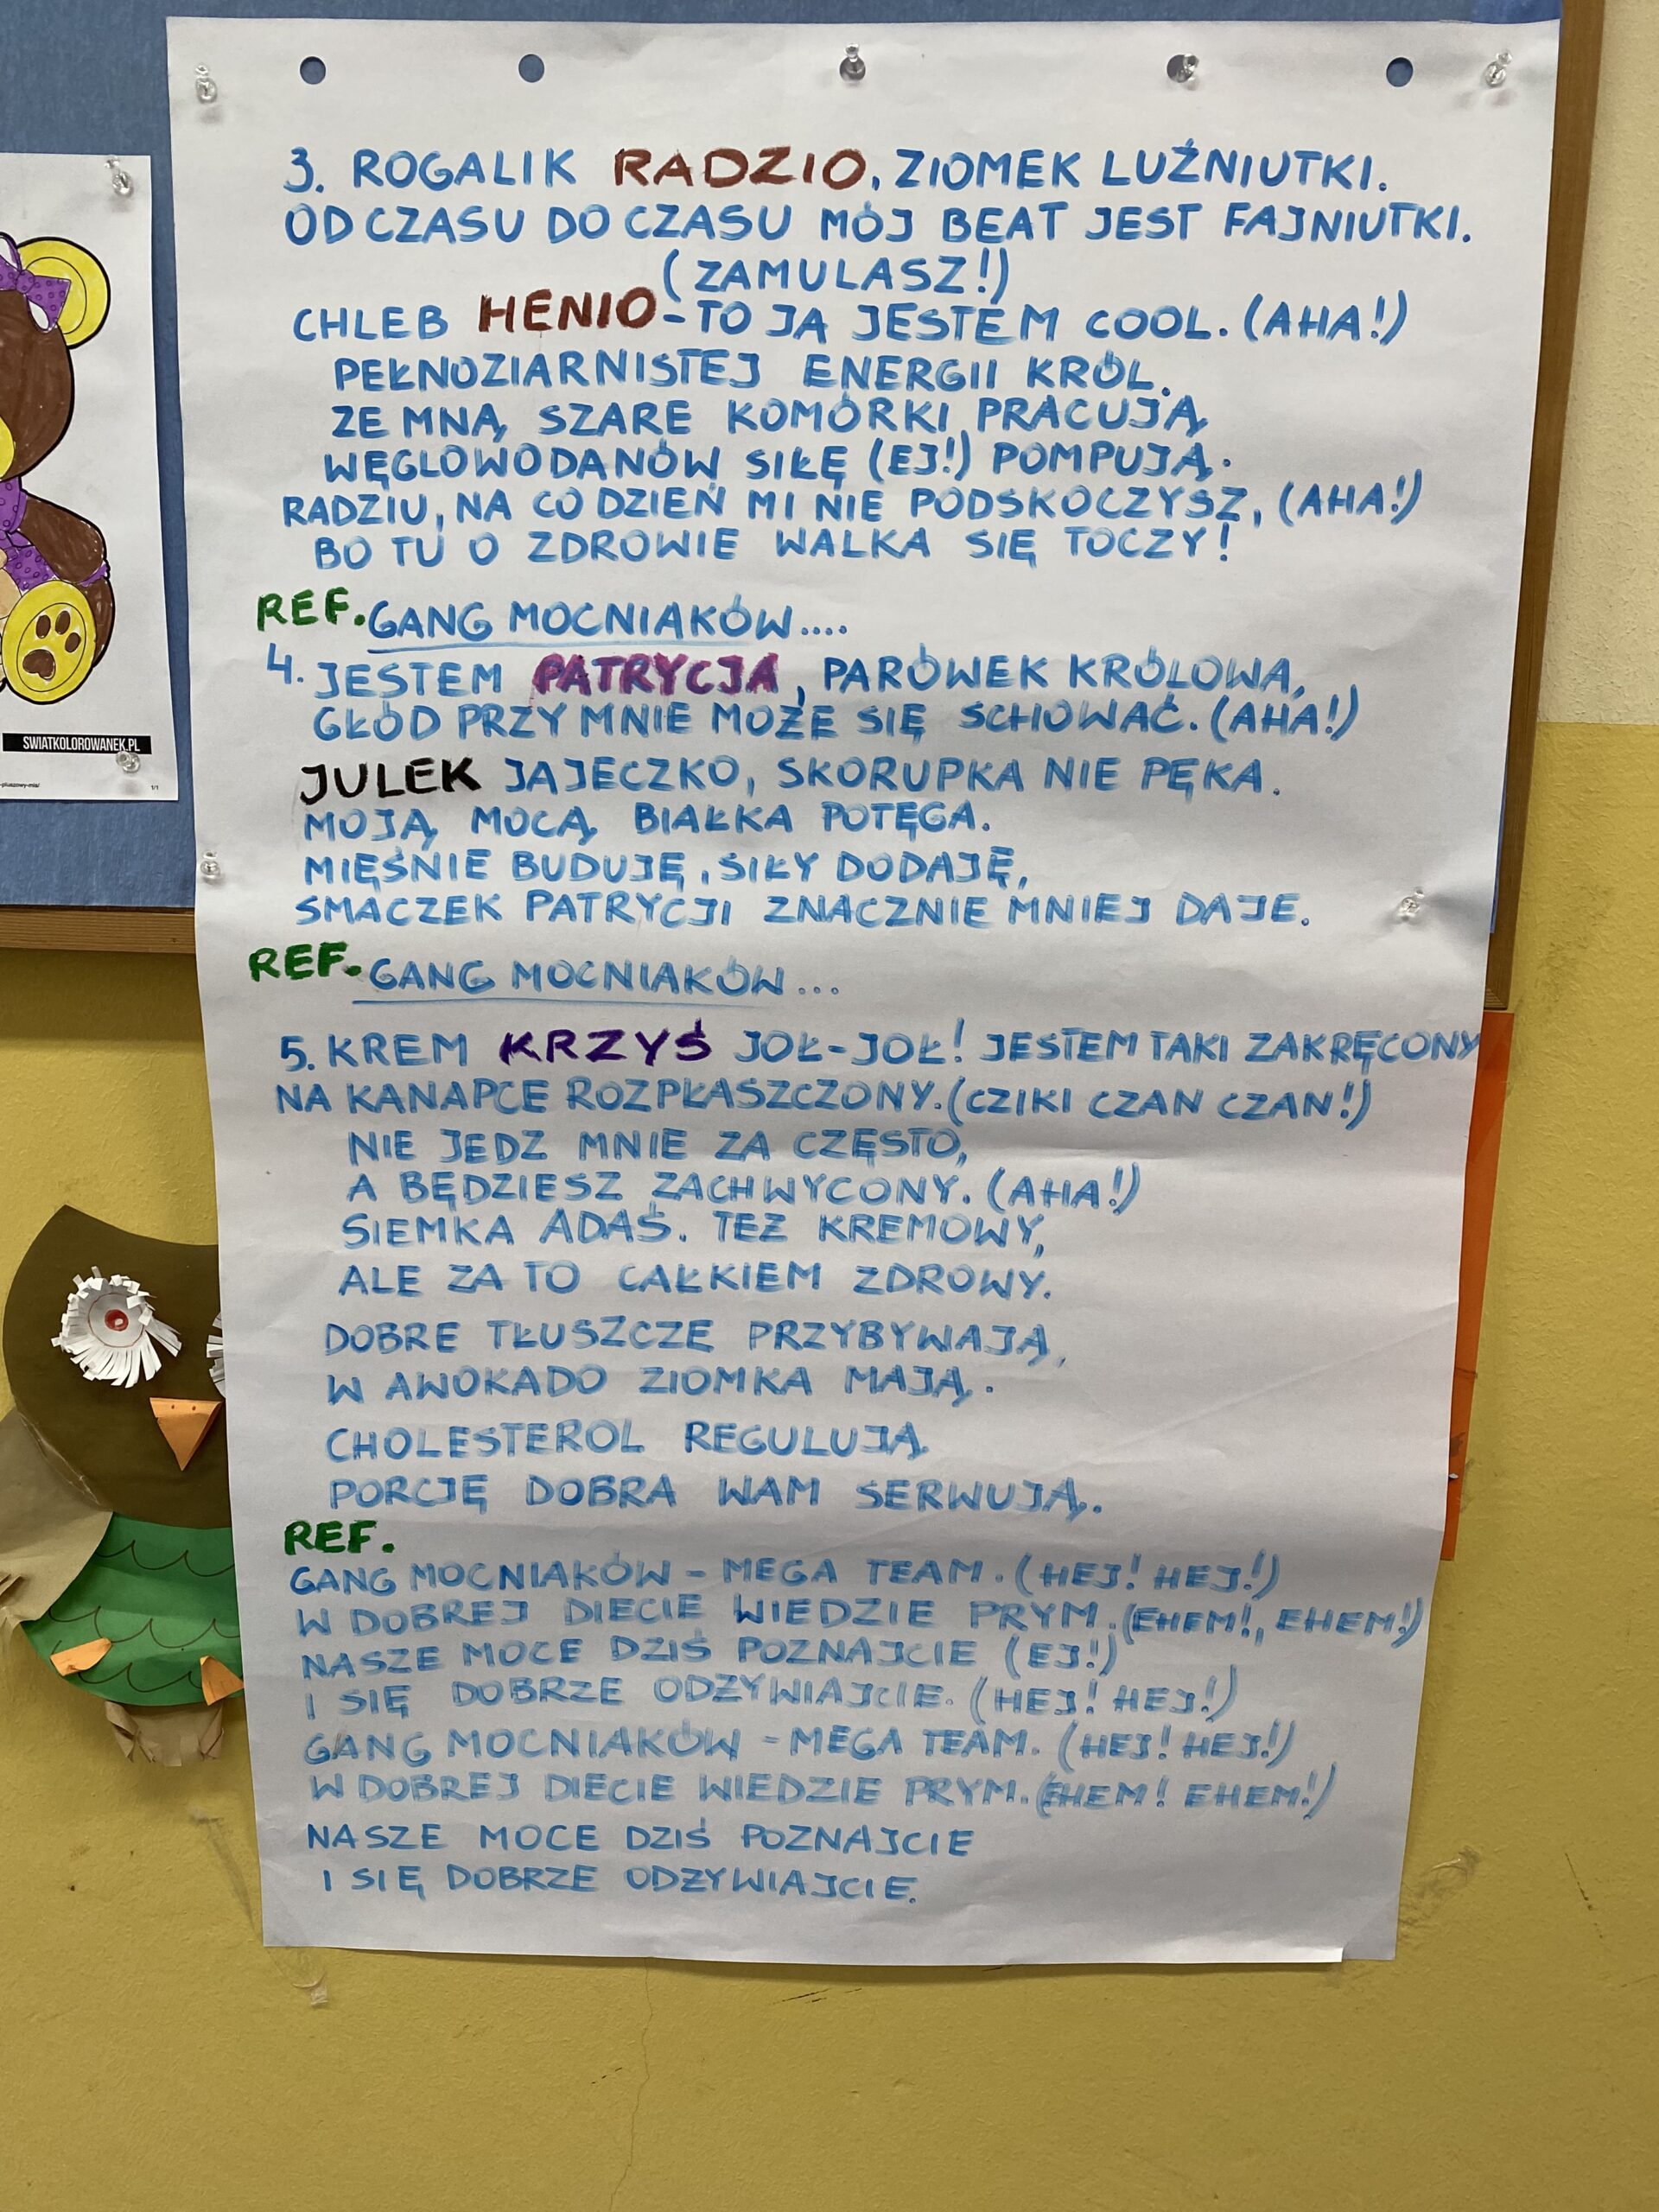 3. ROGALIK RADZIO, ZIOMEK LUŹNIUTKI.
OD CZASU DO CZASU MÓJ BEAT JEST FAJNIUTKI.
(ZAMULASZ!)
CHLEB HENIO - TO JA JESTEM COOL. (AHA!)
PEŁNOZIARNISTEJ ENERGII KRÓL.
ZE MNĄ SZARE KOMÓRKI PRACUJĄ
WĘGLOWODANÓW SIŁĘ (EJ!) POMPUJĄ.
RADZIU, NA CO DZIEŃ MI NIE PODSKOCZYSZ, (AHA!)
BO TU O ZDROWIE WALKA SIĘ TOCZY!
REF. GANG MOCNIAKÓW....
4. JESTEM PATRYCJA, PARÓWEK KRÓLOWA,
GŁÓD PRZY MNIE MOŻE SIĘ SCHOWAĆ. (AHA!)
JULEK JAJECZKO, SKORUPKA NIE PĘKA.
MOJĄ MOCĄ BIAŁKA POTĘGA.
MIĘŚNIE BUDUJĘ, SIŁY DODAJĘ,
SMACZEK PATRYCJI ZNACZNIE MNIEJ DAJE.
REF. GANG MOCNIAKÓW...
5. KREM KRZYŚ JOŁ-JOŁ! JESTEM TAKI ZAKRĘCONY
NA KANAPCE ROZPŁASZCZONY. (CZIKI CZAN CZAN!)
NIE JEDZ MNIE ZA CZĘSTO,
A BĘDZIESZ ZACHWYCONY. (AHA!)
SIEMKA ADAŚ. TEŻ KREMOWY,
ALE ZA TO CAŁKIEM ZDROWY.
DOBRE TŁUSZCZE PRZYBYWAJĄ,
W AWOKADO ZIOMKA MAJĄ.
CHOLESTEROL REGULUJĄ
PORCJĘ DOBRA WAM SERWUJĄ.
REF.
GANG MOCNIAKÓW - MEGA TEAM. (HEJ! HEJ!)
W DOBREJ DIECIE WIEDZIE PRYM. (EHEM!, EHEM!)
NASZE MOCE DZIŚ POZNAJCIE (EJ!)
I SIĘ DOBRZE ODŻYWIAJCIE. (HEJ! HEJ!)
GANG MOCNIAKÓW - MEGA TEAM. (HEJ! HEJ!)
W DOBREJ DIECIE WIEDZIE PRYM. (EHEM! EHEM!)
NASZE MOCE DZIŚ POZNAJCIE
I SIĘ DOBRZE ODŻYWIAJCIE.
SWIATKOLOROWANEK.PL
1/1